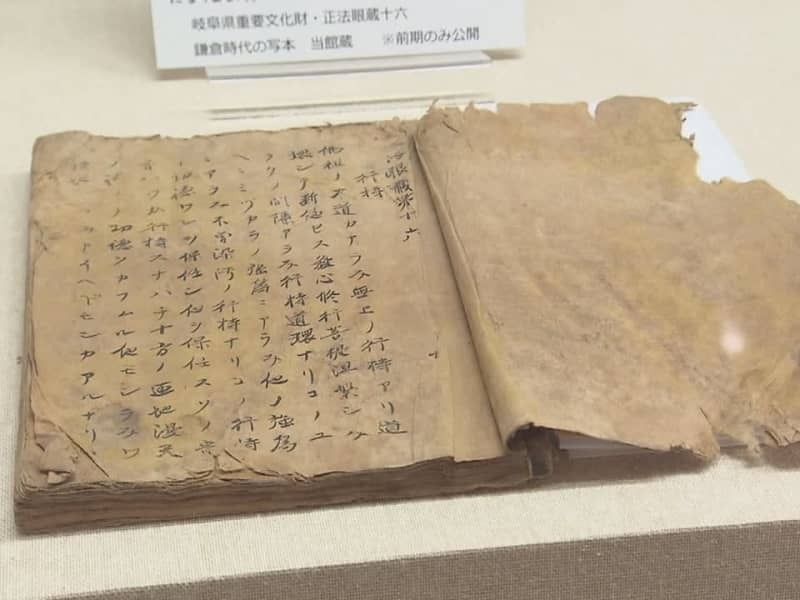 岐阜県重要文化財・正法眼蔵十六
鎌倉時代の写本　当館蔵　※前期のみ公開
法眼蔵第十六
行持
佛祖ノ大道カナラス無上ノ行持アリ道
環シテ断絶セス發心修行菩提涅槃シハ
ラクノ間隙アラス行持道環ナリコノユ
ヘニミツカラノ強為ニアラス他ノ強為
ニアラス不曽染汚ノ行持ナリコノ行持
功徳ワレヲ保任シ他ヲ保任スソノ宗
ハワカ行持スナハチ十方ノ匝地漫天
ノ功徳ヲカフムル他モシラスワ
ラストイヘトモシカアルナリ